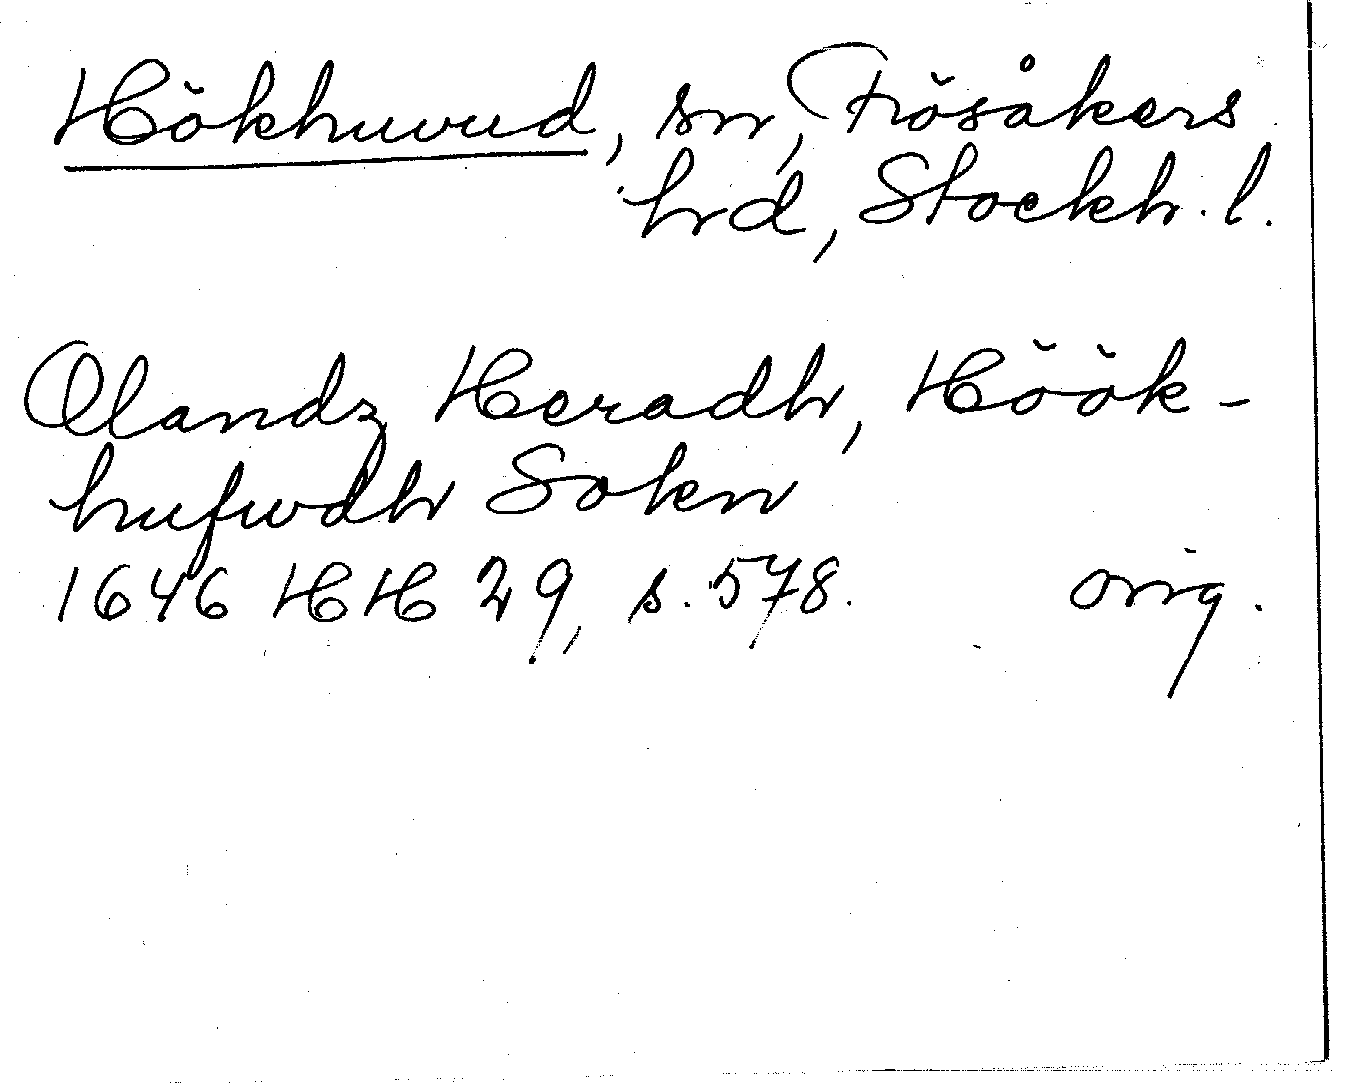 Hökhuvud, sn, Frösåkers
hrd, Stockh. l.
Olandz Heradh, Höök-
hufwdh Sokn
1646 HH 29, s. 578. orig.